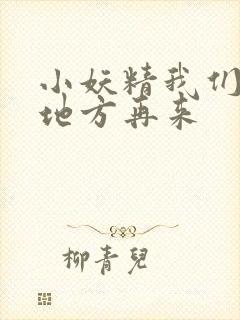 小妖精我们
地方再来
柳青兒